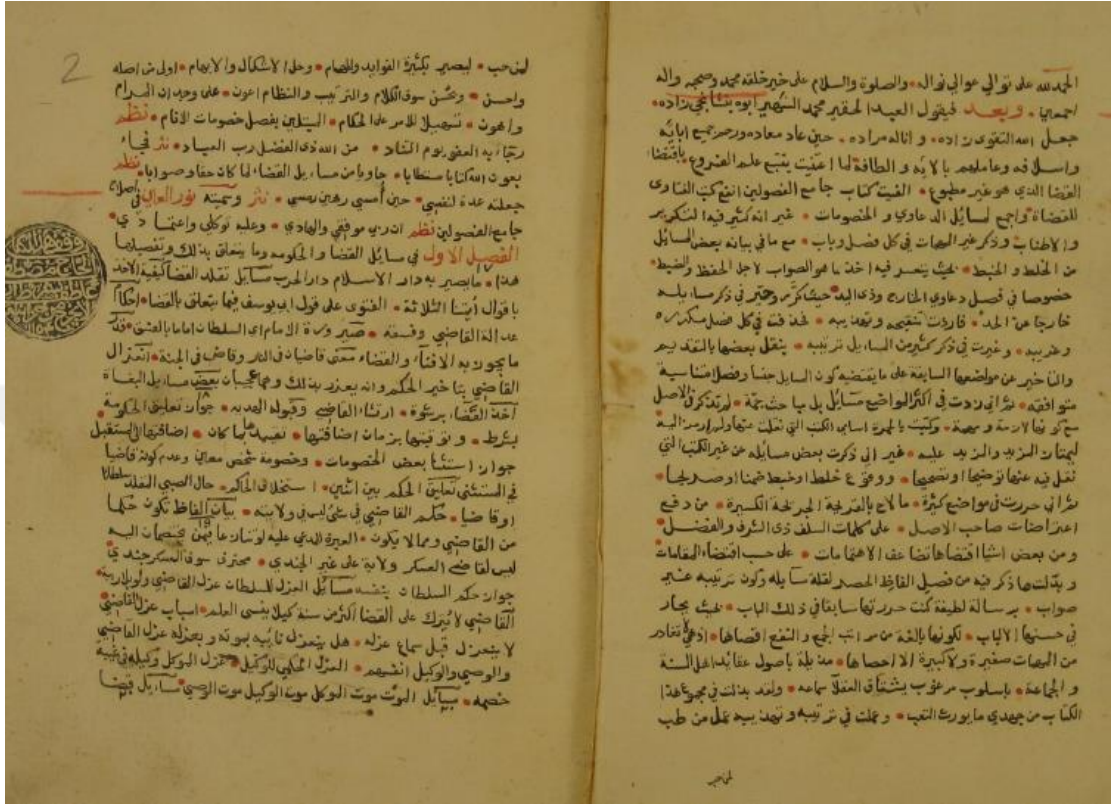 الحمد لله على توالي عوالي نواله والصلوة والسلام على خير خلقه محمد وصحبه واله
اجمعين وبعد فيقول العبد الحقير محمد الشهير ابوه بنشانجي زاده
جعل الله التقوى زاده واناله مراده حين عاد معاده ورحم جميع ابائه
واسلافه وعاملهم بالايه والطافه لما اعتنيت بتتبع علم الفروع باقتضاء
القضا الذي هو غير مطبوع الفيت كتاب جامع الفصولين انفع كتب الفتاوى
للقضاة واجمع لمسائل الدعاوي و الخصومات غير انه كثر فيه التكرير
والاطناب وذكر غير المهمات في كل فصل وباب مع ما في بيانه بعض المسائل
من الخلط و الخبط بحيث يتعسر فيه اخذ ما هو الصواب لاجل الحفظ والضبط
خصوصا في فصل دعاوي الخارج وذي اليد حيث كرر وحير في ذكر مسايله
خارجا عن الحد فاردت تنقيحه وتهذيبه فحذفت في كل فصل مكرره
وغريبه وغيرت في ذكر كثير من المسايل ترتيبه بنقل بعضها بالتقديم
والتاخير عن مواضعها السابقة على ما يقتضيه كون المسايل جنسا وفصل مناسبة
متوافقه ثم اني زدت في اكثر المواضع مسائل بل مباحث جمة لم تذكر في الاصل
مع كونها لازمة ومهمة وكتبت بالحمرة اسامي الكتب التي نقلت عنها
ليمتاز المزيد والمزيد عليه غير اني ذكرت بعض مسائله عن غير الكتب التي
نقل فيه عنها توضيحا وتصحيحا ووقوع خلط وخبط ضمنا او صريحا
ثم اني حررت في مواضع كثيرة ما لاح بالقريحة الجريحة الكسيرة من دفع
اعتراضات صاحب الاصل على كلمات السلف ذي الشرف والفضل
ومن بعض اشيا اقتضاها تضاعف الاهتمامات على حسب اقتضاء المقامات
وبدلت ما ذكر فيه من فصل الفاظ الكفر لقلة مسايله وكون ترتيبه غير
صواب برسالة لطيفة كنت حررتها سابقا في ذلك الباب بحيث يحار
في حسنها الالباب لكونها بالغة من مراتب الجمع والنفع اقصاها اذ لا تغادر
من المهمات صغيرة ولا كبيرة الا احصاها مذيلة باصول عقايد اهل السنة
و الجماعة باسلوب مرغوب يشتاق العقلا سماعه ولقد بذلت في مجموع هذا
الكتاب من جهدي ما يورث التعب وعملت في ترتيبه وتهذيبه عمل من طب
لمن حب
2
لمن حب ليصير بكثرة الفوايد وحل الاشكال والايهام اولى من اصله
واحسن وبحسن سوق الكلام والترتيب والنظام اعون على وجدان المرام
واهون تسهيلا للامر على الحكام المبتلين بفصل خصومات الانام نظم
رجاء به العفو يوم التناد من الله ذي الفضل رب العباد نثر فجاء
بعون الله كتابا مستطابا حاويا من مسايل القضا لما كان حقا وصوابا نظم
جعلته عدة لنفسي حين أمسي رهين رمسي نثر وسميته نور العين في اصلاح
جامع الفصولين نظم ان ربي موفقي والهادي وعليه توكلي واعتمادي
الفصل الاول في مسايل القضا و الحكومه وما يتعلق بذلك وتفصيلها
هذا ما يصير به دار الاسلام دار الحرب مسايل تقلد القضا كيفية الاخذ
باقوال أيمتنا الثلاثة الفتوى على قول ابي يوسف فيما يتعلق بالقضا احكام
عدالة القاضي وفسقه صيرورة الامام اي السلطان اماما بالفسق قدر
ما يجوز به الافتاء والقضاء معنى قاضيان في النار وقاض في الجنة انعزال
القاضي بتاخير الحكم وانه يعزر بذلك وهما عجيبان بعض مسايل البغاة
أخذ القضاء برشوة ارتشاء القاضي وقبوله الهديه جواز تعليق الحكومة
بشرط وتوقيتها بزمان اضافتها تقييدها بمكان اضافتها الى مستقبل
جواز استثنا بعض الخصومات وخصومة شخص معين وعدم كونه قاضيا
في المستثنى تعليق الحكم بين اثنين استخلاف الحاكم حال الصبي المقلد سلطانا
او قاضيا حكم القاضي في شئ ليس في ولايته بيان الفاظ تكون حكما
من القاضي ومما لا يكون العبرة للمدعي عليه لو تنازعا فيمن يختصمان اليه
ليس لقاضي العسكر ولاية على غير الجندي محترف سوق العسكر جندي
جواز حكم السلطان بنفسه مسايل العزل للسلطان عزل القاضي ولو بلا ريبة
القاضي لا يترك على القضا اكثر من سنة كيلا ينسى العلم اسباب عزل القاضي
لا ينعزل قبل سماع عزله هل ينعزل نايبه بموته وبعزله عزل القاضي
والوصي والوكيل انفسهم العزل الحكمي للوكيل عزل الموكل وكيله في غيبة
خصمه مسايل الموت موت الموكل موت الوكيل موت الوصي مسايل قضا